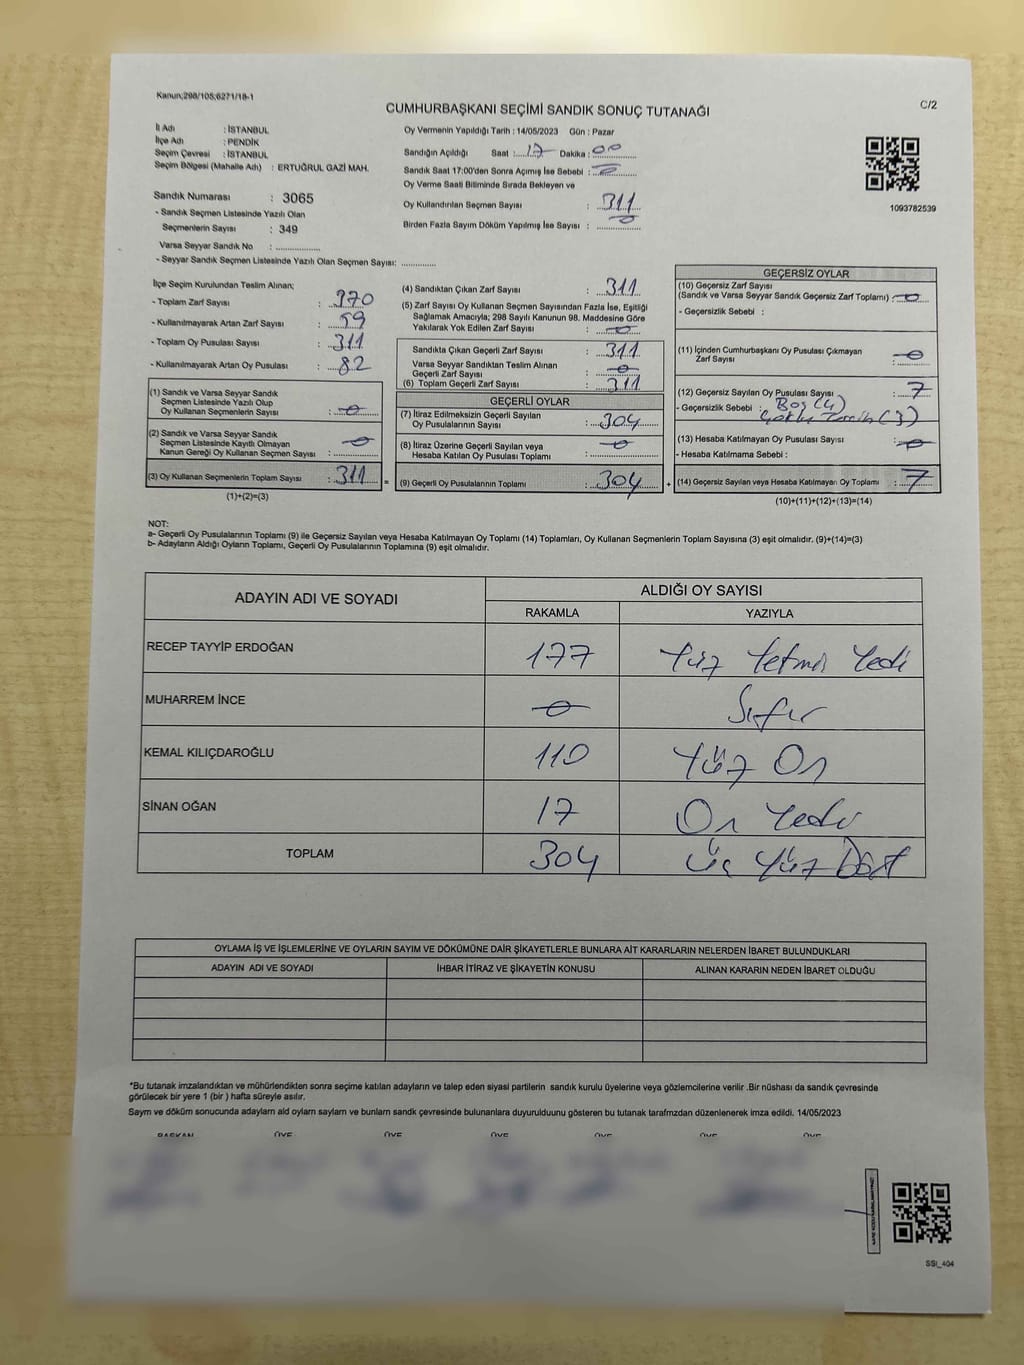 Kanun;298/105;6271/18-1
C/2
CUMHURBAŞKANI SEÇİMİ SANDIK SONUÇ TUTANAĞI
İl Adı : İSTANBUL
İlçe Adı : PENDİK
Seçim Çevresi : İSTANBUL
Seçim Bölgesi (Mahalle Adı) : ERTUĞRUL GAZİ MAH.
Sandık Numarası : 3065
- Sandık Seçmen Listesinde Yazılı Olan
Seçmenlerin Sayısı : 349
Varsa Seyyar Sandık No : ..............
- Seyyar Sandık Seçmen Listesinde Yazılı Olan Seçmen Sayısı: ............
Oy Vermenin Yapıldığı Tarih : 14/05/2023 Gün : Pazar
Sandığın Açıldığı Saat : 17 Dakika : 00
Sandık Saat 17:00'den Sonra Açımış İse Sebebi :
Oy Verme Saati Bitiminde Sırada Bekleyen ve
Oy Kullandırılan Seçmen Sayısı : 311
Birden Fazla Sayım Döküm Yapılmış İse Sayısı :
1093782539
İlçe Seçim Kurulundan Teslim Alınan;
- Toplam Zarf Sayısı : 370
- Kullanılmayarak Artan Zarf Sayısı : 59
- Toplam Oy Pusulası Sayısı : 311
- Kullanılmayarak Artan Oy Pusulası : 82
(1) Sandık ve Varsa Seyyar Sandık
Seçmen Listesinde Yazılı Olup
Oy Kullanan Seçmenlerin Sayısı : 0
(2) Sandık ve Varsa Seyyar Sandık
Seçmen Listesinde Kayıtlı Olmayan
Kanun Gereği Oy Kullanan Seçmen Sayısı : 0
(3) Oy Kullanan Seçmenlerin Toplam Sayısı : 311 =
(1)+(2)=(3)
(4) Sandıktan Çıkan Zarf Sayısı : 311
(5) Zarf Sayısı Oy Kullanan Seçmen Sayısından Fazla İse, Eşitliği
Sağlamak Amacıyla; 298 Sayılı Kanunun 98. Maddesine Göre
Yakılarak Yok Edilen Zarf Sayısı : 0
Sandıkta Çıkan Geçerli Zarf Sayısı : 311
Varsa Seyyar Sandıktan Teslim Alınan
Geçerli Zarf Sayısı : 0
(6) Toplam Geçerli Zarf Sayısı : 311
GEÇERLİ OYLAR
(7) İtiraz Edilmeksizin Geçerli Sayılan
Oy Pusulasının Sayısı : 304
(8) İtiraz Üzerine Geçerli Sayılan veya
Hesaba Katılan Oy Pusulası Toplamı : 0
(9) Geçerli Oy Pusulalarının Toplamı : 304 +
GEÇERSİZ OYLAR
(10) Geçersiz Zarf Sayısı
(Sandık ve Varsa Seyyar Sandık Geçersiz Zarf Toplamı) : 0
- Geçersizlik Sebebi :
(11) İçinden Cumhurbaşkanı Oy Pusulası Çıkmayan
Zarf Sayısı : 0
(12) Geçersiz Sayılan Oy Pusulası Sayısı : 7
- Geçersizlik Sebebi : Boş (4)
Çoklu Tercih (3)
(13) Hesaba Katılmayan Oy Pusulası Sayısı : 0
- Hesaba Katılmama Sebebi :
(14) Geçersiz Sayılan veya Hesaba Katılmayan Oy Toplamı : 7
(10)+(11)+(12)+(13)=(14)
NOT:
a- Geçerli Oy Pusulalarının Toplamı (9) ile Geçersiz Sayılan veya Hesaba Katılmayan Oy Toplamı (14) Toplamları, Oy Kullanan Seçmenlerin Toplam Sayısına (3) eşit olmalıdır. (9)+(14)=(3)
b- Adayların Aldığı Oyların Toplamı, Geçerli Oy Pusulalarının Toplamına (9) eşit olmalıdır.
ADAYIN ADI VE SOYADI
ALDIĞI OY SAYISI
RAKAMLA YAZIYLA
RECEP TAYYİP ERDOĞAN 177 Yüz Yetmiş Yedi
MUHARREM İNCE 0 Sıfır
KEMAL KILIÇDAROĞLU 110 Yüz On
SİNAN OĞAN 17 On Yedi
TOPLAM 304 Üç Yüz Dört
OYLAMA İŞ VE İŞLEMLERİNE VE OYLARIN SAYIM VE DÖKÜMÜNE DAİR ŞİKAYETLERLE BUNLARA AİT KARARLARIN NELERDEN İBARET BULUNDUKLARI
ADAYIN ADI VE SOYADI İHBAR İTİRAZ VE ŞİKAYETİN KONUSU ALINAN KARARIN NEDEN İBARET OLDUĞU
*Bu tutanak imzalandıktan ve mühürlendikten sonra seçime katılan adayların ve talep eden siyasi partilerin sandık kurulu üyelerine veya gözlemcilerine verilir .Bir nüshası da sandık çevresinde
görülecek bir yere 1 (bir ) hafta süreyle asılır.
Sayım ve döküm sonucunda adaylarn ald oylarn saylarn ve bunlarn sandk çevresinde bulunanlara duyurulduunu gösteren bu tutanak tarafmzdan düzenlenerek imza edildi. 14/05/2023
BAŞKAN ÜYE ÜYE ÜYE ÜYE ÜYE ÜYE
SSI_404